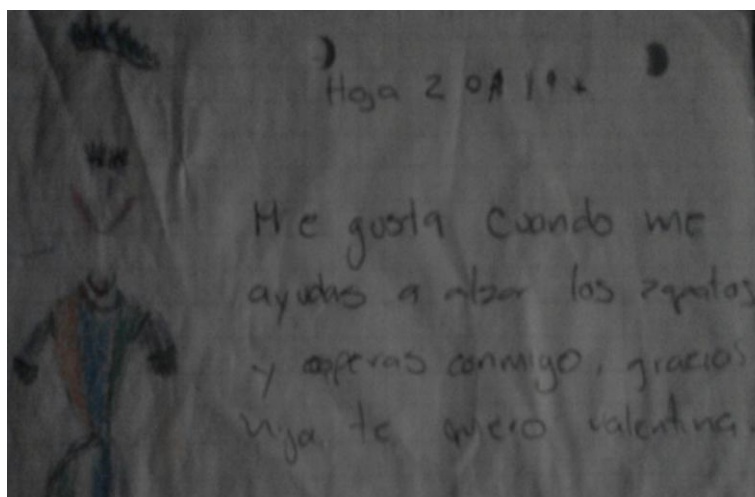 Hoja 2
Me gusta cuando me
ayudas a alzar los zapatos
y cooperas conmigo, gracias
hija te quiero valentina.